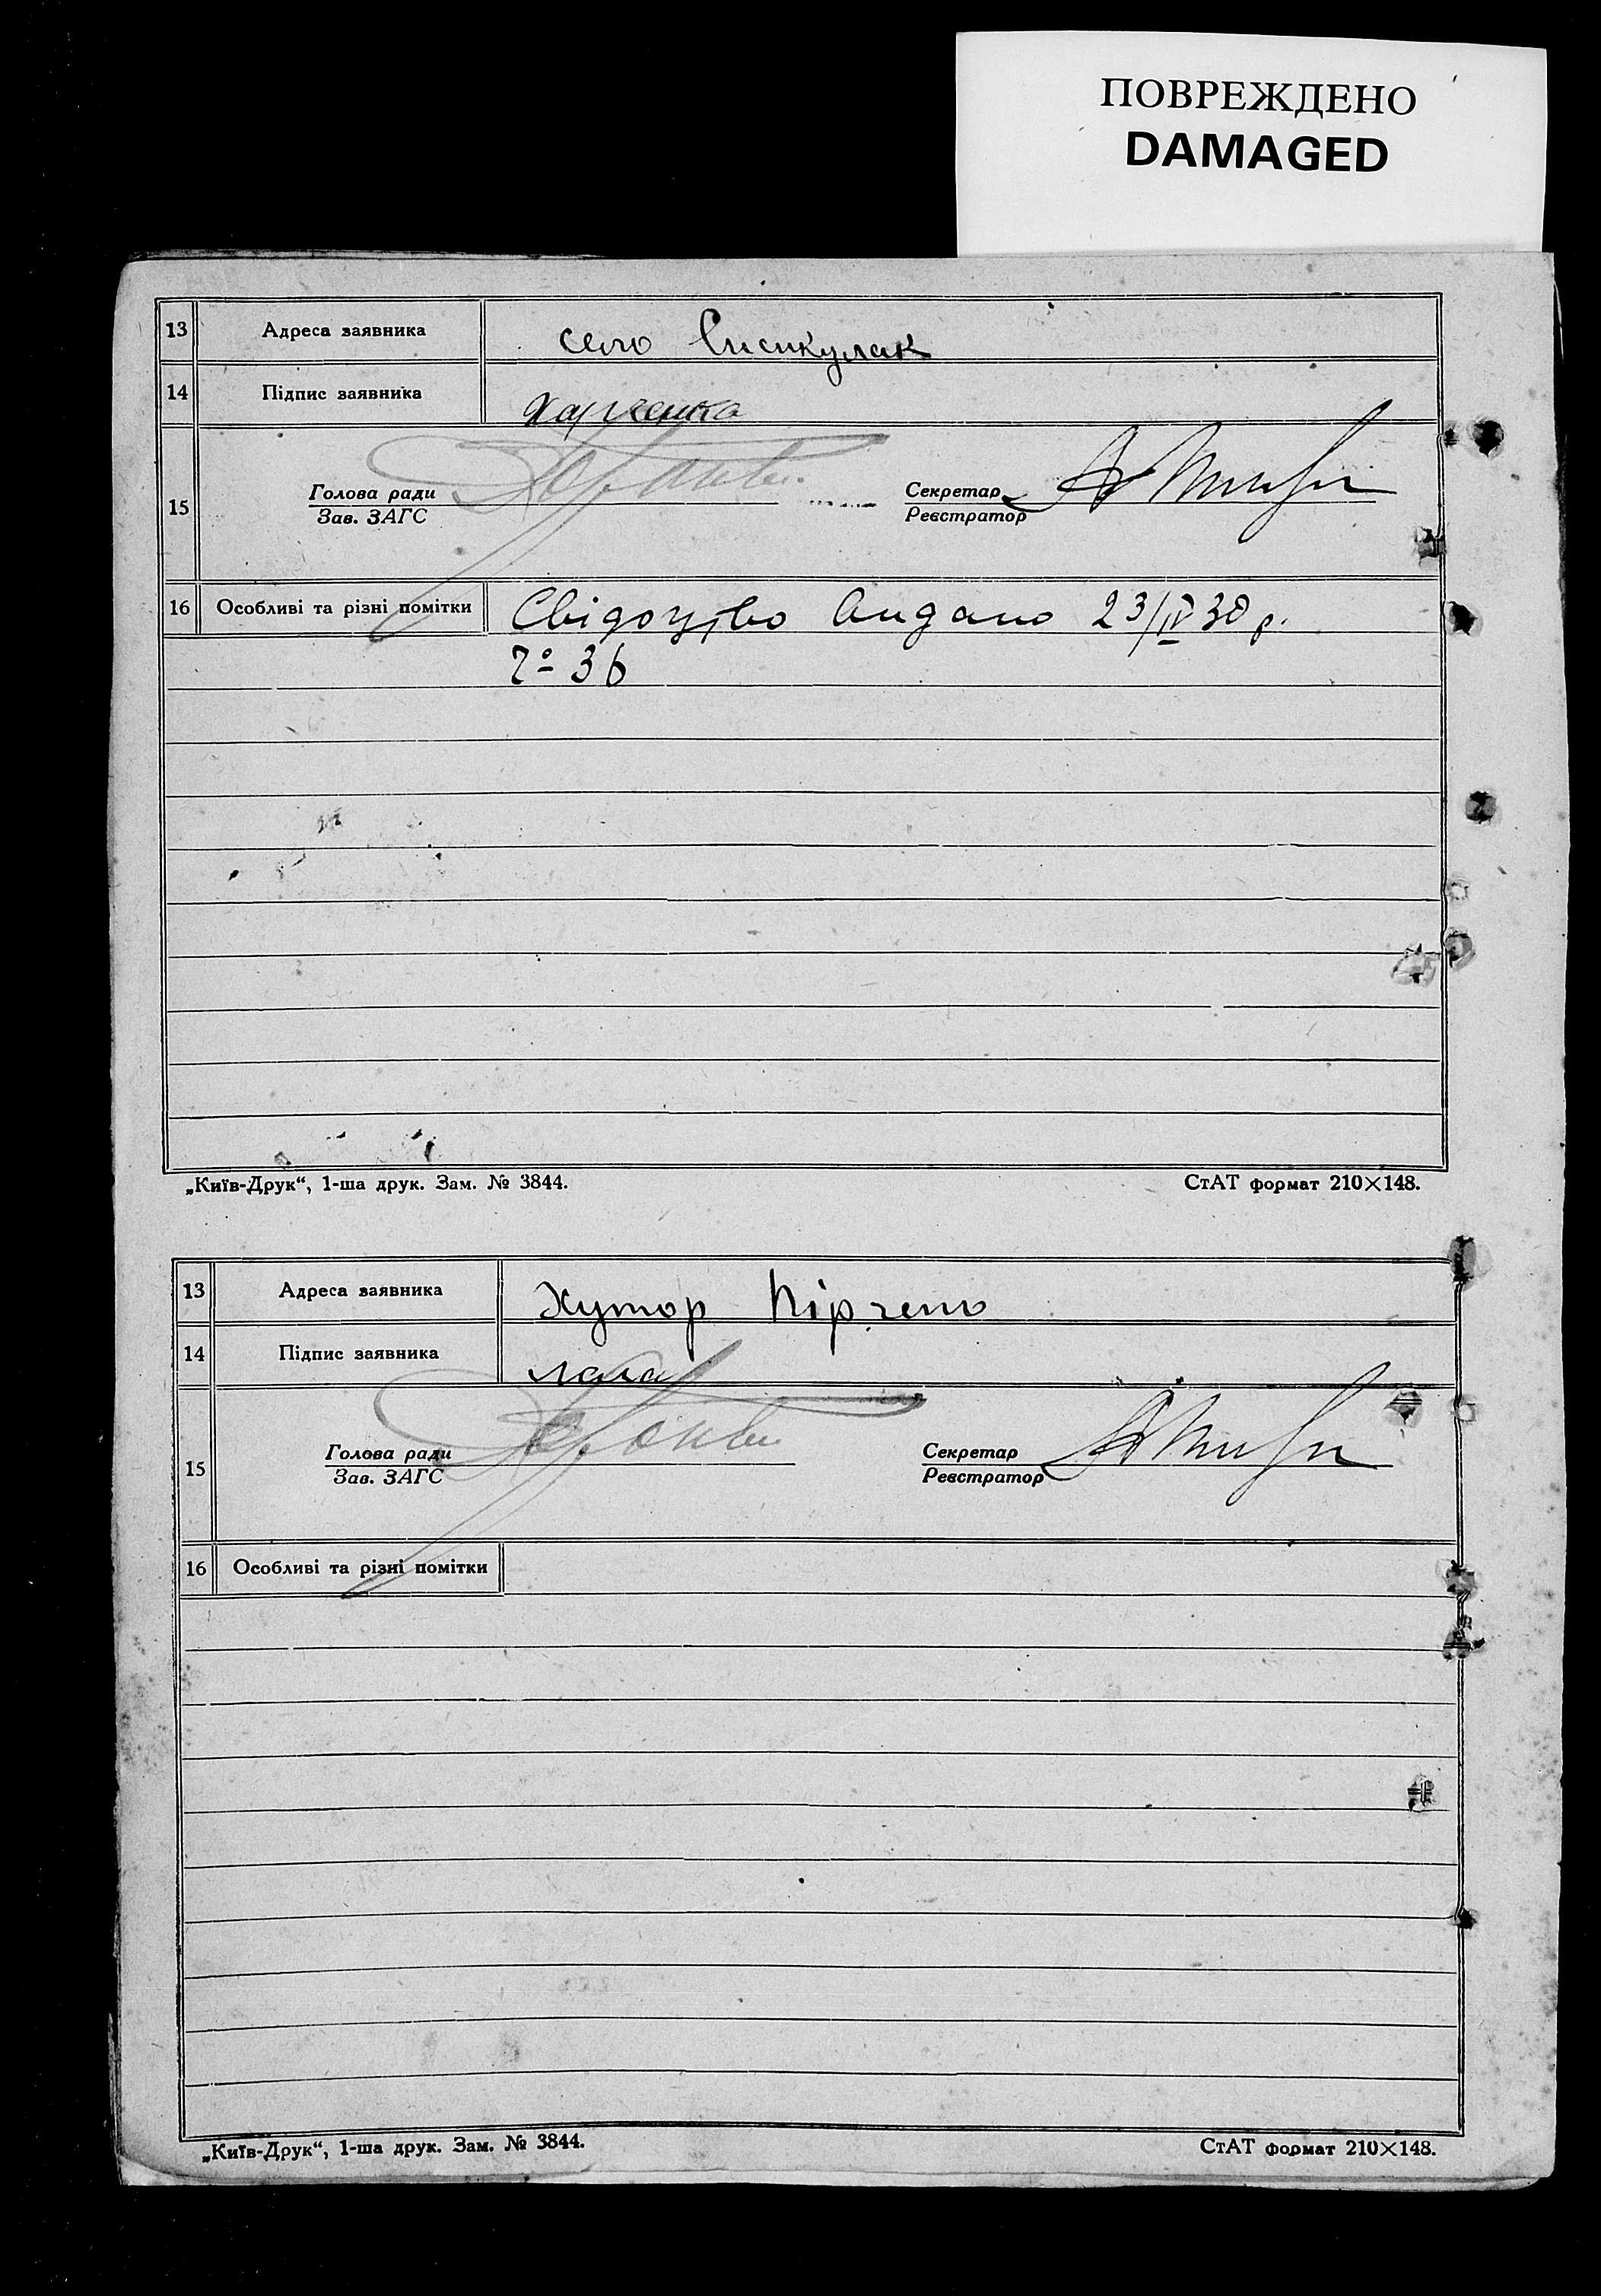 ПОВРЕЖДЕНО
DAMAGED
13 Адреса заявника село
14 Підпис заявника Харченко
15 Голова ради Секретар
Зав. ЗАГС Реєстратор
16 Особливі та різні помітки Свідоцтво видано 23/IV 30 р.
№ 36
„Київ-Друк“, 1-ша друк. Зам. № 3844. СтАТ формат 210×148.
13 Адреса заявника Хутор
14 Підпис заявника
15 Голова ради Секретар
Зав. ЗАГС Реєстратор
16 Особливі та різні помітки
„Київ-Друк“, 1-ша друк. Зам. № 3844. СтАТ формат 210×148.